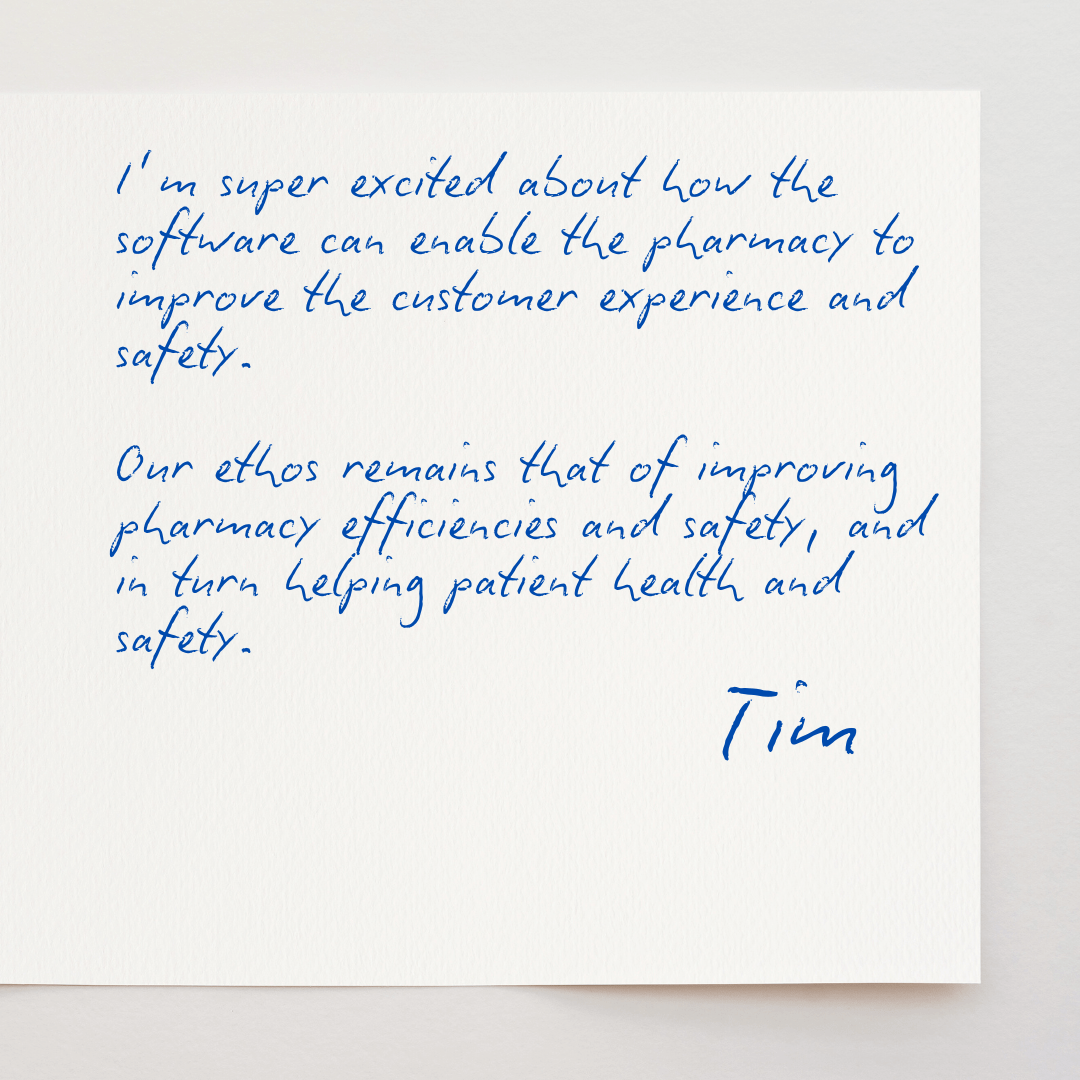 I'm super excited about how the
software can enable the pharmacy to
improve the customer experience and
safety.
Our ethos remains that of improving
pharmacy efficiencies and safety, and
in turn helping patient health and
safety.
Tim